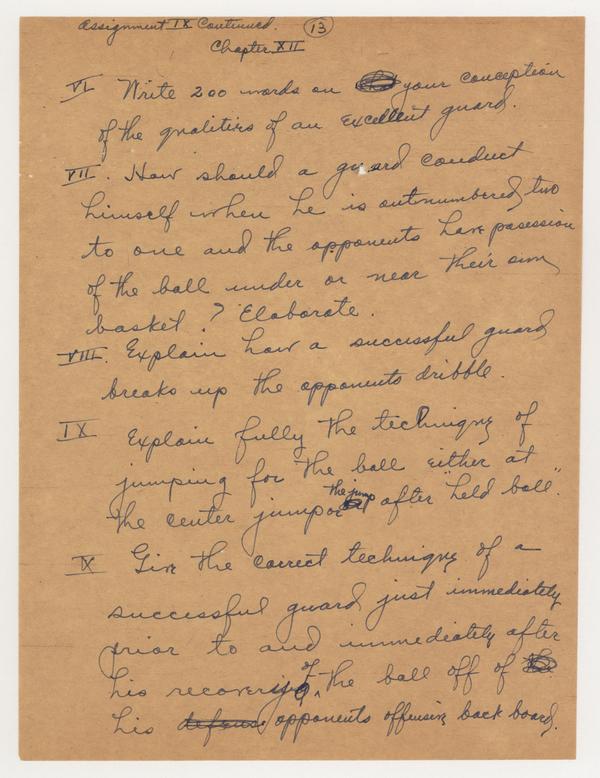 Assignment IX Continued. 13
Chapter XII
VI Write 200 words on your conception
of the qualities of an excellent guard.
VII. How should a guard conduct
himself when he is outnumbered two
to one and the opponents have pasession
of the ball under or near their own
basket. ? Elaborate.
VIII. Explain how a successful guard
breaks up the opponents dribble.
IX Explain fully the technique of
jumping for the ball either at
the center jump or the jump after "held ball".
X Give the correct technique of a
successful guard just immediately
prior to and immediately after
his recovery of the ball off of
his defense opponents offensive back board.